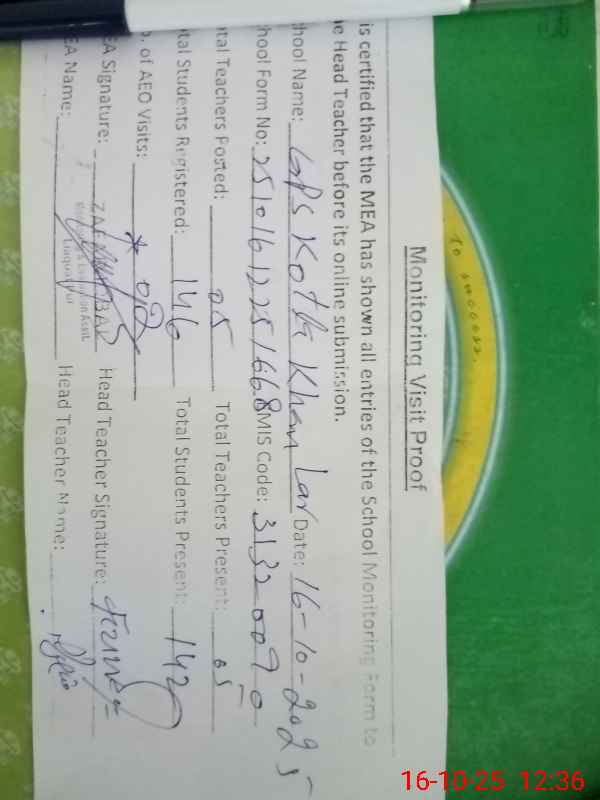 To success.
Monitoring Visit Proof
is certified that the MEA has shown all entries of the School Monitoring Form to
e Head Teacher before its online submission.
hool Name: GPS Kotla Khan Lar Date: 16-10-2025
hool Form No: 25101612251668 MIS Code: 313320090
tal Teachers Posted: 05 Total Teachers Present: 05
tal Students Registered: 146 Total Students Present: 142
. of AEO Visits:
EA Signature: Head Teacher Signature:
EA Name: Liaquatpur Head Teacher Name:
16-10-25 12:36